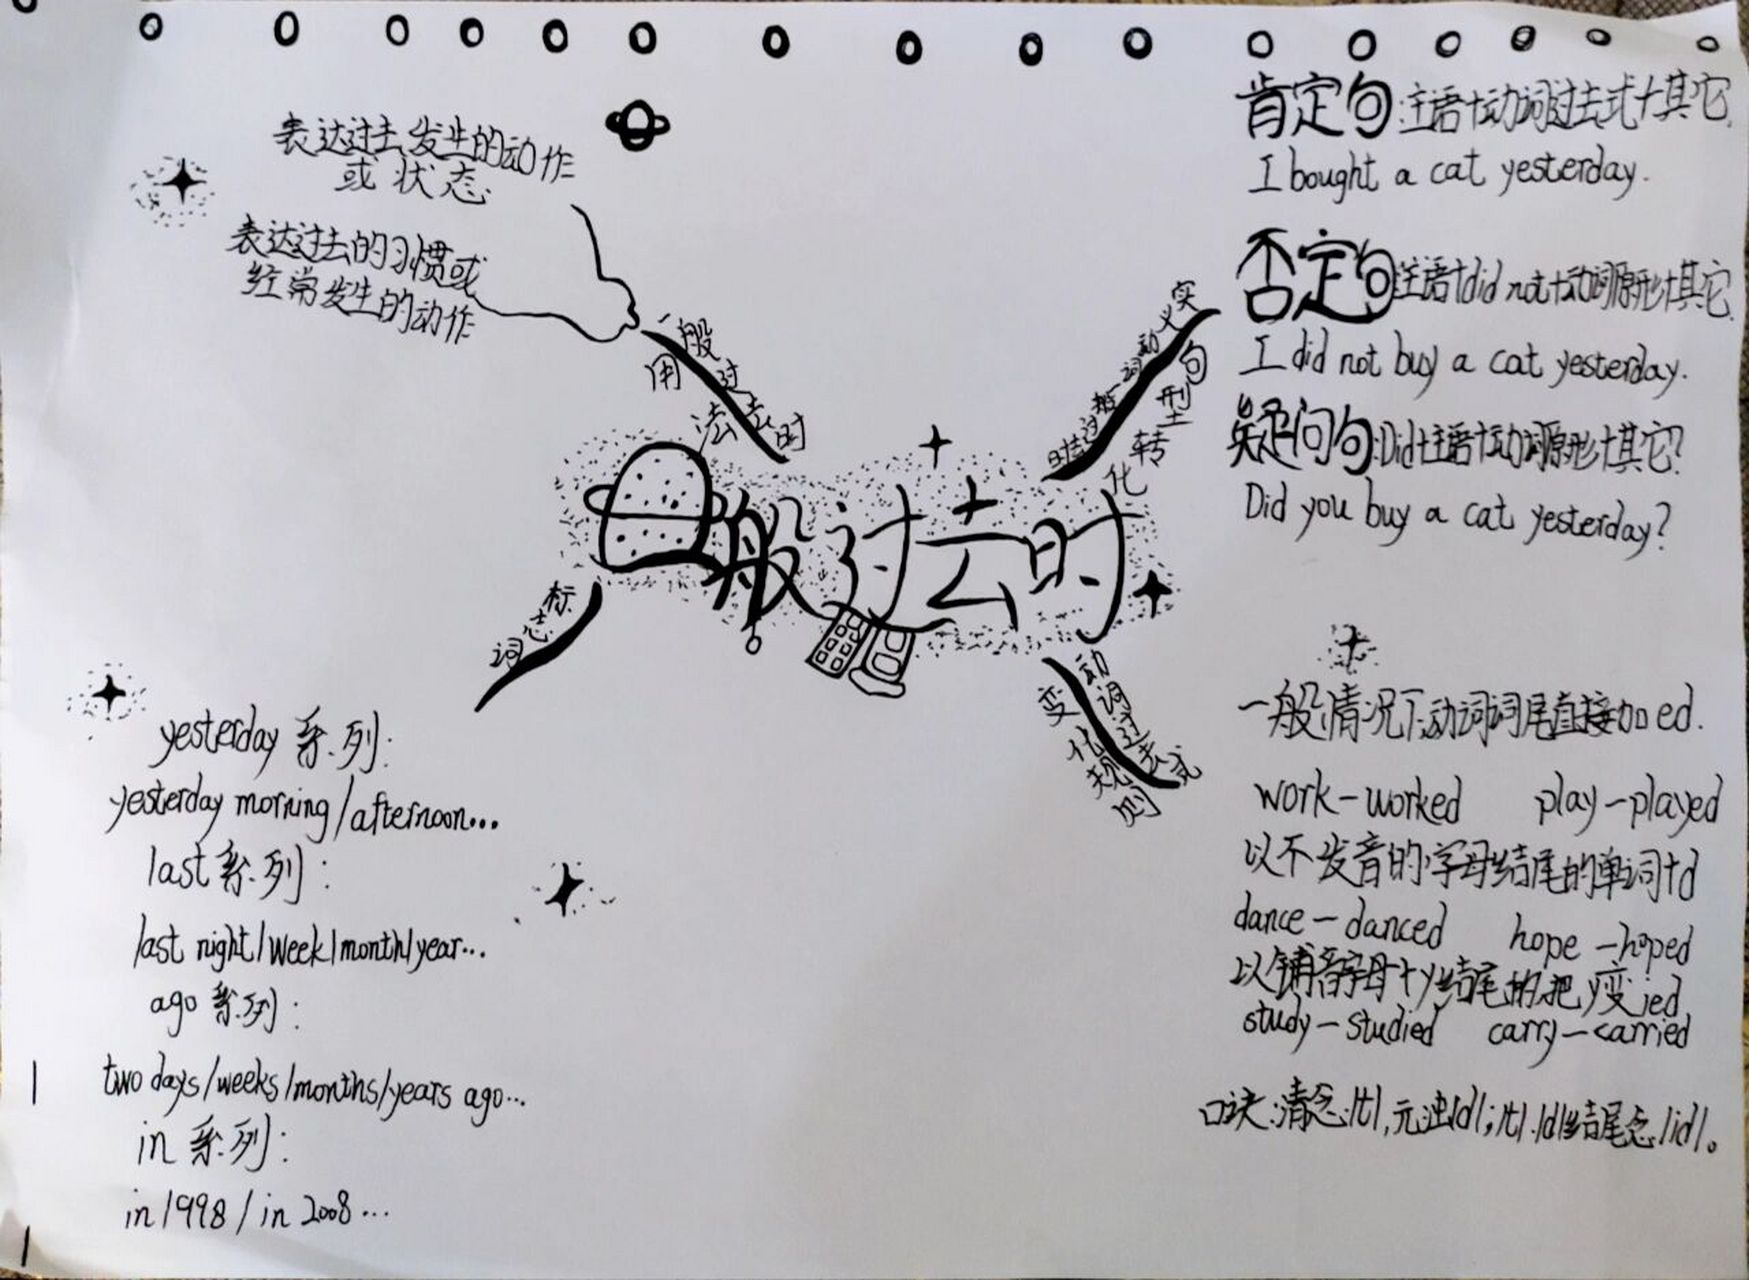 表达过去发生的动作
或状态
表达过去的习惯或
经常发生的动作
一般过去时
用法
一般过去时
标志词
yesterday 系列:
yesterday morning/afternoon...
last系列:
last night/week/month/year...
ago系列:
two days/weeks/months/years ago...
in系列:
in 1998 / in 2008...
实义动词一般过去时
句型转化
肯定句:主语+动词过去式+其它.
I bought a cat yesterday.
否定句:主语+did not+动词原形+其它.
I did not buy a cat yesterday.
疑问句:Did+主语+动词原形+其它?
Did you buy a cat yesterday?
动词过去式
变化规则
一般情况下,动词词尾直接加ed.
work-worked play-played
以不发音的字母结尾的单词+d
dance-danced hope-hoped
以辅音字母+y结尾的,把y变ied
study-studied carry-carried
口诀:清念/t/,元浊/d/;/t/./d/结尾念/id/。